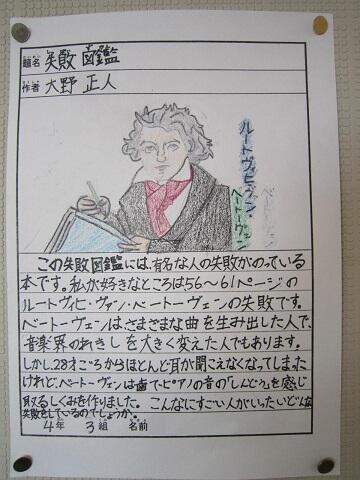 題名 失敗図鑑
作者 大野 正人
ルートヴィヒ・ヴァン・
ベートーヴェン
この失敗図鑑には、有名な人の失敗がのっている
本です。私が好きなところは56〜61ページの
ルートヴィヒ・ヴァン・ベートーヴェンの失敗です。
ベートーヴェンはさまざまな曲を生み出した人で、
音楽界のれきしを大きく変えた人でもあります。
しかし、28才ごろからほとんど耳が聞こえなくなってしまった
けれど、ベートーヴェンは歯でピアノの音の「しんどう」を感じ
取るしくみを作りました。こんなにすごい人がいったいどんな
失敗をしているのでしょうか。
4年 3組 名前